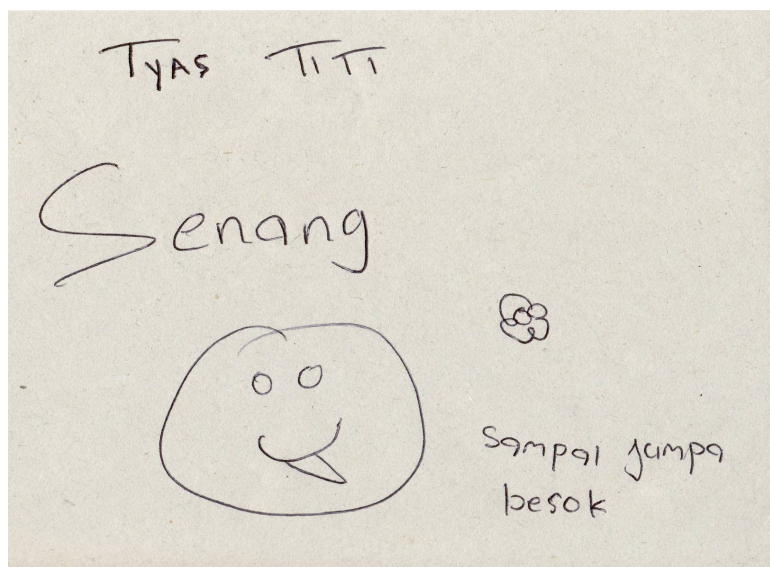 TyAS TITI
Senang
Sampai jumpa
besok